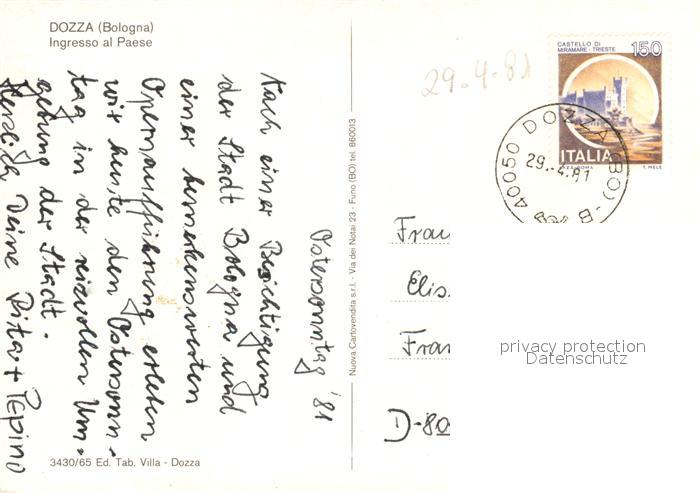 DOZZA (Bologna)
Ingresso al Paese
Ostersonntag '81
Nach einer Besichtigung
der Stadt Bologna und
einer bemerkenswerten
Opernaufführung erleben
wir heute den Ostersonn-
tag in der reizvollen Um-
gebung der Stadt.
Herzlich Deine Rita + Pepino
3430/65 Ed. Tab. Villa - Dozza
Nuova Cartovendita s.r.l. - Via dei Notai 23 - Funo (BO) tel. 860013
29.4.81
CASTELLO DI
MIRAMARE - TRIESTE
150
ITALIA
T. MELE
40050 DOZZA (BO) - B
29.4.81
Frau
Elis.
Fran
D-80
privacy protection
Datenschutz